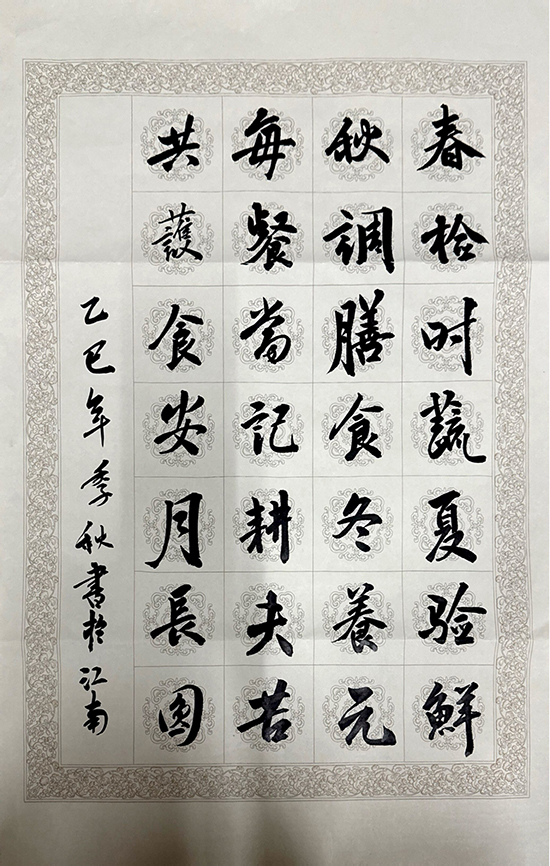 春检时蔬夏验鲜
秋調膳食冬養元
每餐當記耕夫苦
共護食安月長圆
乙巳年季秋書於江南